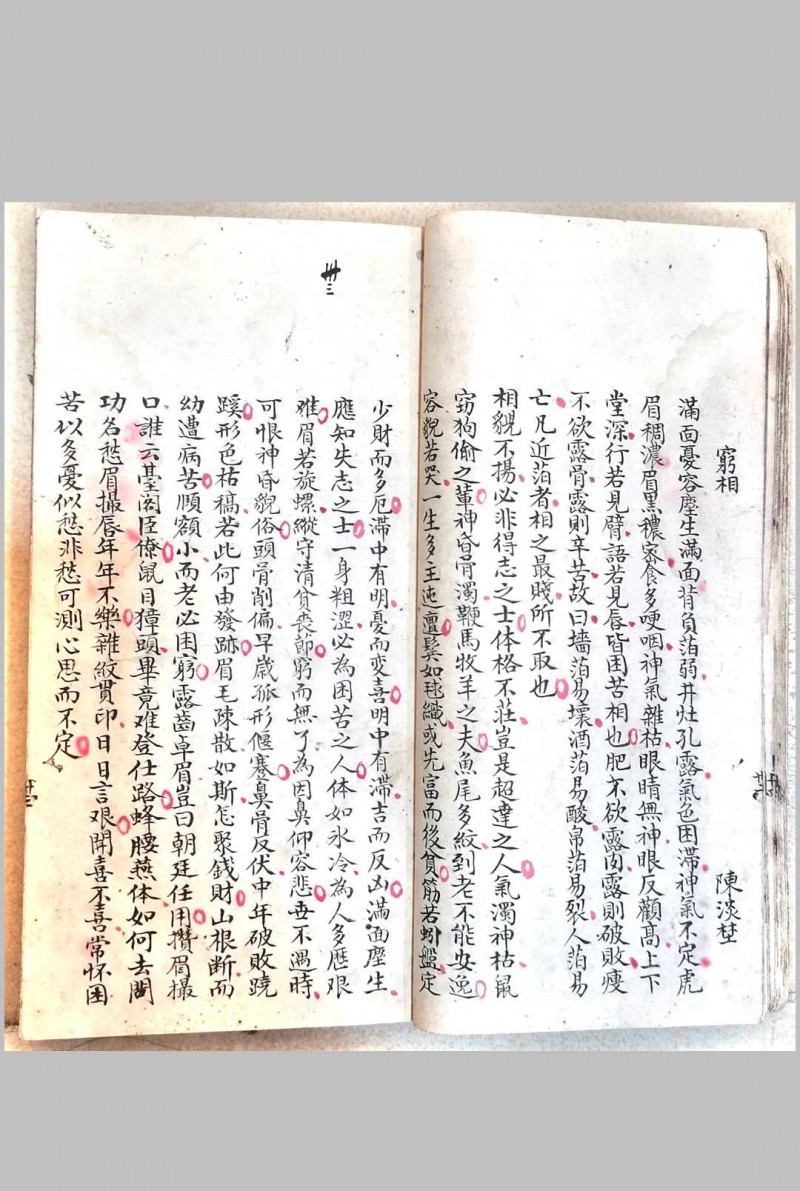 窮相
陳淡埜
滿面憂容塵生滿面背負萡弱井灶孔露氣色困滯神氣不定虎
眉稠濃眉黑穠宻食多哽咽神氣雜枯眼睛無神眼反顴高上下
堂深行若見臂語若見唇皆困苦相也肥不欲露肉露則破敗瘦
不欲露骨露則辛苦故曰墻萡易壞酒萡易酸帛萡易裂人萡易
亡凡近萡者相之最賤所不取也
相貌不揚必非得志之士体格不莊豈是超達之人氣濁神枯鼠
窃狗偷之輩神昏骨濁鞭馬牧羊之夫魚尾多紋到老不能安逸
容貌若哭一生多主迍邅鬓如毬織或先富而後貧筋若蚓盤定
卅三
少財而多厄滯中有明憂而变喜明中有滞吉而反凶滿面塵生
應知失志之士一身粗澀必為困苦之人体如氷冷為人多歴艰
难眉若旋螺縱守清貧丧節窮而無了為因鼻仰容悲丗不遇時
可恨神昏貌俗頭骨削偏早歲孤形偃蹇鼻骨反伏中年破敗蹺
蹊形色枯稿若此何由發跡眉毛疎散如斯怎聚錢財山根断而
幼遭病苦順額小而老必困窮露齒卓眉豈曰朝廷任用攢眉撮
口誰云臺阁臣僚鼠目獐頭畢竟难登仕路蜂腰燕体如何去闗
功名愁眉撮唇年年不樂雜紋貫印日日言艰開喜不喜常怀困
苦以多憂似愁非愁可測心思而不定